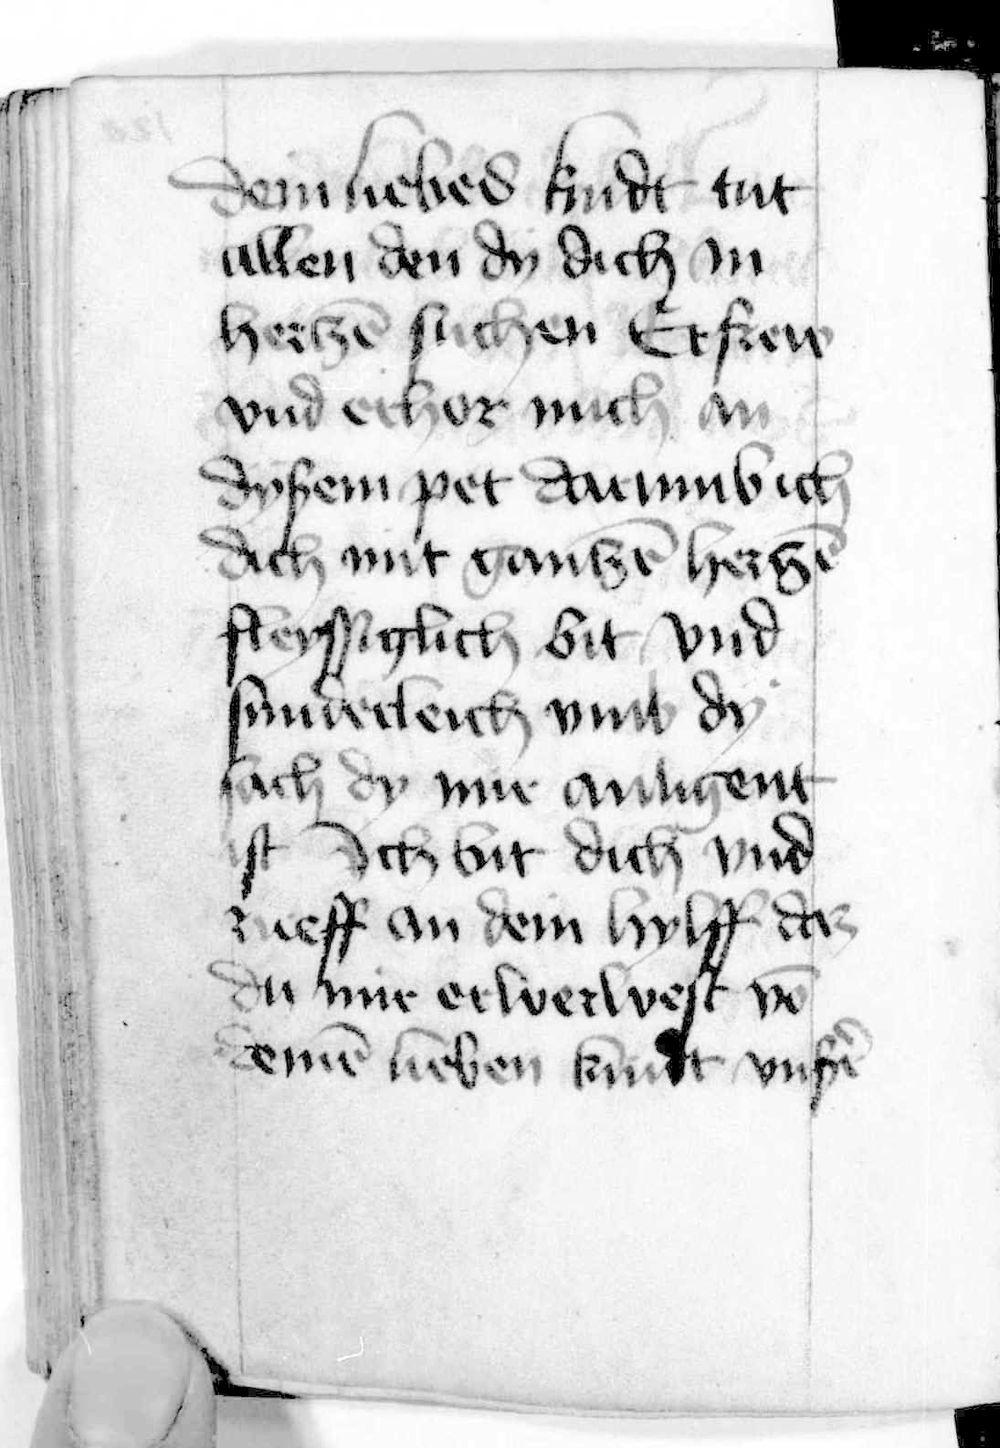 dein liebes kindt tut
allen den dy dich in
hertzē suchen Erfrew
vnd erhor mich an
dyßem pet darumb ich
dich mit gantzē hertzē
fleyssiglich bit vnd
sunderleich vmb dy
sach dy mir anligent
ist Ich bit dich vnd
rueff an dein hylff daz
du mir erwerbest vō
deinē lieben kindt vnßr̄